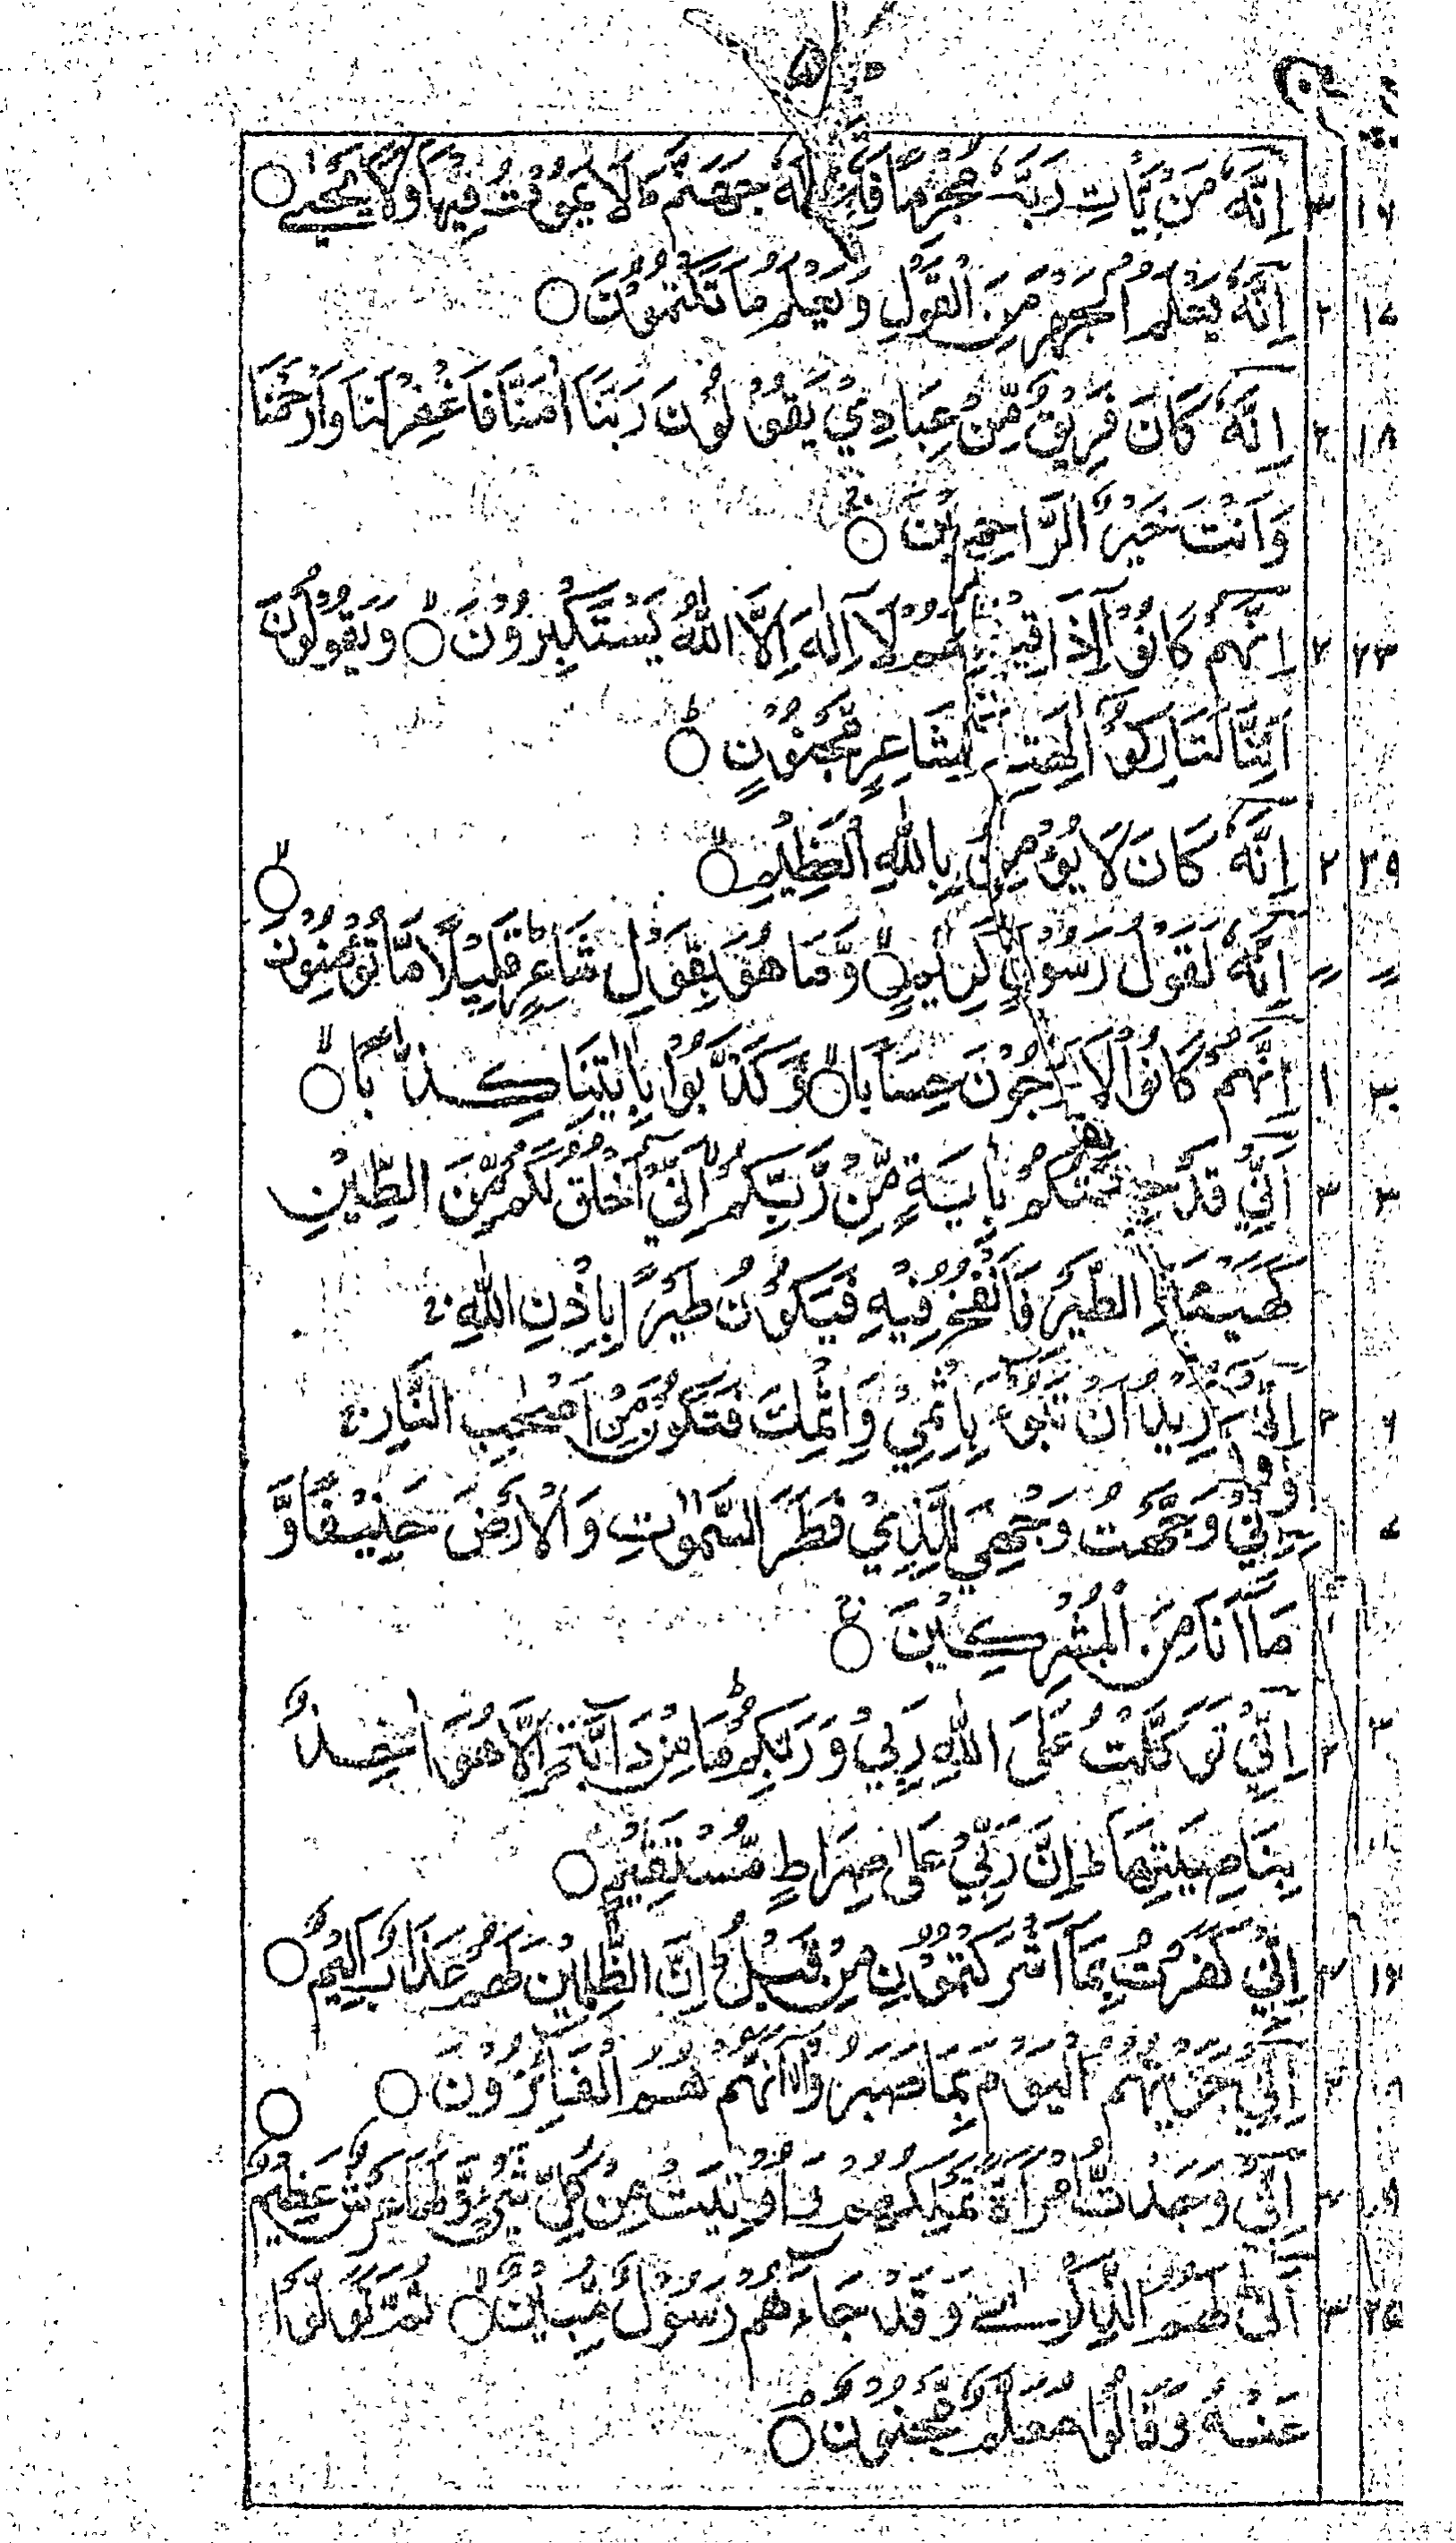 ۵
۱۶ ۳ اِنَّهٗ مَنْ يَّاْتِ رَبَّهٗ مُجْرِمًا فَاِنَّ لَهٗ جَهَنَّمَ لَا يَمُوْتُ فِيْهَا وَلَا يَحْيٰى ○
۱۷ ۲ اِنَّهٗ يَعْلَمُ الْجَهْرَ مِنَ الْقَوْلِ وَيَعْلَمُ مَا تَكْتُمُوْنَ ○
۱۸ ۲ اِنَّهٗ كَانَ فَرِيْقٌ مِّنْ عِبَادِيْ يَقُوْلُوْنَ رَبَّنَا اٰمَنَّا فَاغْفِرْ لَنَا وَارْحَمْنَا
وَاَنْتَ خَيْرُ الرَّاحِمِيْنَ ○
۲۳ ۲ اِنَّهُمْ كَانُوْٓا اِذَا قِيْلَ لَهُمْ لَآ اِلٰهَ اِلَّا اللّٰهُ يَسْتَكْبِرُوْنَ ○ وَيَقُوْلُوْنَ
اَئِنَّا لَتَارِكُوْٓا اٰلِهَتِنَا لِشَاعِرٍ مَّجْنُوْنٍ ○
۲۹ ۲ اِنَّهٗ كَانَ لَا يُؤْمِنُ بِاللّٰهِ الْعَظِيْمِ ○
〃 〃 اِنَّهٗ لَقَوْلُ رَسُوْلٍ كَرِيْمٍ ○ وَّمَا هُوَ بِقَوْلِ شَاعِرٍ قَلِيْلًا مَّا تُؤْمِنُوْنَ ○
۳۰ ۱ اِنَّهُمْ كَانُوْا لَا يَرْجُوْنَ حِسَابًا ○ وَّكَذَّبُوْا بِاٰيٰتِنَا كِذَّابًا ○
۳ ۳ اَنِّيْ قَدْ جِئْتُكُمْ بِاٰيَةٍ مِّنْ رَّبِّكُمْ اَنِّيْٓ اَخْلُقُ لَكُمْ مِّنَ الطِّيْنِ
كَهَيْئَةِ الطَّيْرِ فَاَنْفُخُ فِيْهِ فَيَكُوْنُ طَيْرًا بِاِذْنِ اللّٰهِ ج
۶ ۲ اِنِّيْٓ اُرِيْدُ اَنْ تَبُوْٓءَ بِاِثْمِيْ وَاِثْمِكَ فَتَكُوْنَ مِنْ اَصْحٰبِ النَّارِ ج
۷ اِنِّيْ وَجَّهْتُ وَجْهِيَ لِلَّذِيْ فَطَرَ السَّمٰوٰتِ وَالْاَرْضَ حَنِيْفًا وَّ
مَآ اَنَا مِنَ الْمُشْرِكِيْنَ ○
۲ اِنِّيْ تَوَكَّلْتُ عَلَى اللّٰهِ رَبِّيْ وَرَبِّكُمْ ط مَا مِنْ دَآبَّةٍ اِلَّا هُوَ اٰخِذٌ
بِنَاصِيَتِهَا ط اِنَّ رَبِّيْ عَلٰى صِرَاطٍ مُّسْتَقِيْمٍ ○
اِنِّيْ كَفَرْتُ بِمَآ اَشْرَكْتُمُوْنِ مِنْ قَبْلُ ط اِنَّ الظّٰلِمِيْنَ لَهُمْ عَذَابٌ اَلِيْمٌ ○
اِنِّيْ جَزَيْتُهُمُ الْيَوْمَ بِمَا صَبَرُوْٓا اَنَّهُمْ هُمُ الْفَآئِزُوْنَ ○
اِنِّيْ وَجَدْتُّ امْرَاَةً تَمْلِكُهُمْ وَاُوْتِيَتْ مِنْ كُلِّ شَيْءٍ وَّلَهَا عَرْشٌ عَظِيْمٌ ○
۲۵ ۳ اَنّٰى لَهُمُ الذِّكْرٰى وَقَدْ جَآءَهُمْ رَسُوْلٌ مُّبِيْنٌ ○ ثُمَّ تَوَلَّوْا
عَنْهُ وَقَالُوْا مُعَلَّمٌ مَّجْنُوْنٌ ○